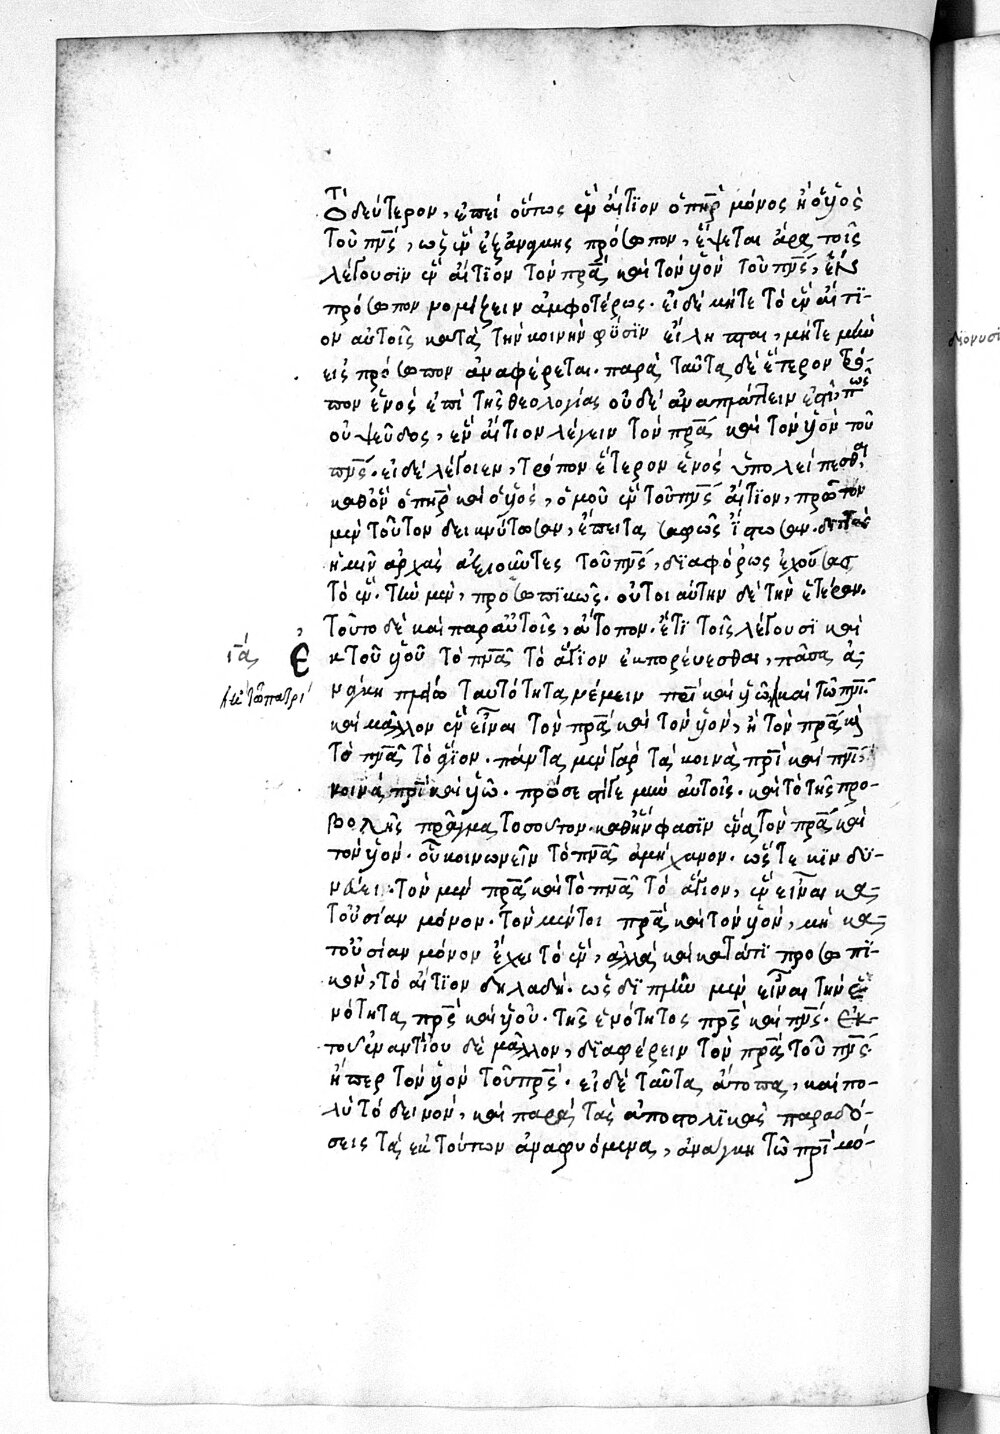 Τὸ δεύτερον, ἐπεὶ οὕπως ἓν αἴτϊον ὁ πη̅ρ μόνος ἢ ὁ ὑϊὸς
τοῦ πν̅ς, ὡς ἓν ἐξανάγκης πρόσωπον, ἕψεται ἄρα τοῖς
λέγουσϊν ἓν αἴτϊον τὸν πρ̅α καὶ τὸν ὑϊὸν τοῦ πν̅ς, ἓν
πρόσωπον νομίζειν ἀμφοτέρως. εἰ δὲ μήτε τὸ ἓν αἴτϊ-
ον αὐτοῖς κατὰ τὴν κοινὴν φύσϊν εἴληπται, μήτε μὴν
εἰς πρόσωπον ἀναφέρεται. παρὰ ταῦτα δὲ ἕτερον τρό-
πον ἑνὸς ἐπὶ τῆς θεολογίας οὐδὲ ἀναπλάττειν ἐστί, πῶς
οὐ ψεῦδος, ἓν αἴτιον λέγειν τὸν πρ̅α καὶ τὸν ὑϊὸν τοῦ
πν̅ς. εἰ δὲ λέγοιεν, τρόπον ἕτερον ἑνὸς ὑπολείπεσθαι
καθὃν ὁ πη̅ρ καὶ ὁ ὑϊὸς, ὁμοῦ ἓν τοῦ πν̅ς αἴτϊον, πρῶτον
μὲν τοῦτον δεικνύτωσαν, ἔπειτα σαφῶς ἴστωσαν διττὰς
ἡμῖν ἀρχὰς ἀξιοῦντες τοῦ πν̅ς, δϊαφόρως ἐχούσας
τὸ ἕν. τὴν μὲν, προσωπϊκῶς. οὗτοι αὐτὴν δὲ τὴν ἑτέραν.
τοῦτο δὲ καὶ παραὐτοῖς, ἄτοπον. ἔτϊ τοῖς λέγουσϊ καὶ
ια Ἐκ τοῦ ὑϊοῦ τὸ πν̅α τὸ ἅγιον ἐκπορέυεσθαι, πᾶσα ἀ-
νάγκη ταυτότητα νέμειν πρ̅ὶ καὶ ὑϊῷ ἢ καὶ τῷ πν̅ϊ.
καὶ μᾶλλον ἓν εἶναι τὸν πρ̅α καὶ τὸν ὑϊὸν, ἢ τὸν πρ̅α καὶ
τὸ πν̅α τὸ ἅγιον. πάντα μὲν γὰρ τὰ κοινὰ πρ̅ὶ καὶ πν̅ϊ,
κοινὰ πρ̅ὶ καὶ ὑϊῷ. πρόσεστι γε μὴν αὐτοῖς. καὶ τὸ τῆς προ-
βολῆς πρᾶγμα τοσοῦτον. καθἥν φασϊν ἕνα τὸν πρ̅α καὶ
τὸν ὑϊόν. οὗ κοινωνεῖν τὸ πν̅α ἀμήχανον. ὥστε κϊνδϋ-
νέυει. τὸν μὲν πρ̅α καὶ τὸ πν̅α τὸ ἅγιον, ἓν εἶναι κα-
τοὐσίαν μόνον. τὸν μέντοι πρ̅α καὶ τὸν ὑϊὸν, μὴ κα-
τοὐσίαν μόνον ἔχειν τὸ ἓν, ἀλλὰ καὶ κατάτϊ προσωπϊ-
κὸν, τὸ αἴτϊον δηλαδή. ὡς δϊττὴν μὲν εἶναι τὴν ἑ-
νότητα πρ̅ς καὶ ὑϊοῦ. τῆς ἑνότητος πρ̅ς καὶ πν̅ς. ἐκ
τοῦ ἐναντίου δὲ μᾶλλον, δϊαφέρειν τὸν πρ̅α τοῦ πν̅ς.
ἤπερ τὸν ὑϊὸν τοῦ πρ̅ς. εἰ δὲ ταῦτα ἄτοπα, καὶ πο-
λὺ τὸ δεινὸν, καὶ παρὰ τὰς ἀποστολϊκὰς παραδό-
σεις τὰ ἐκ τούτων ἀναφυόμενα, ἀνάγκη τῷ πρ̅ὶ μό-